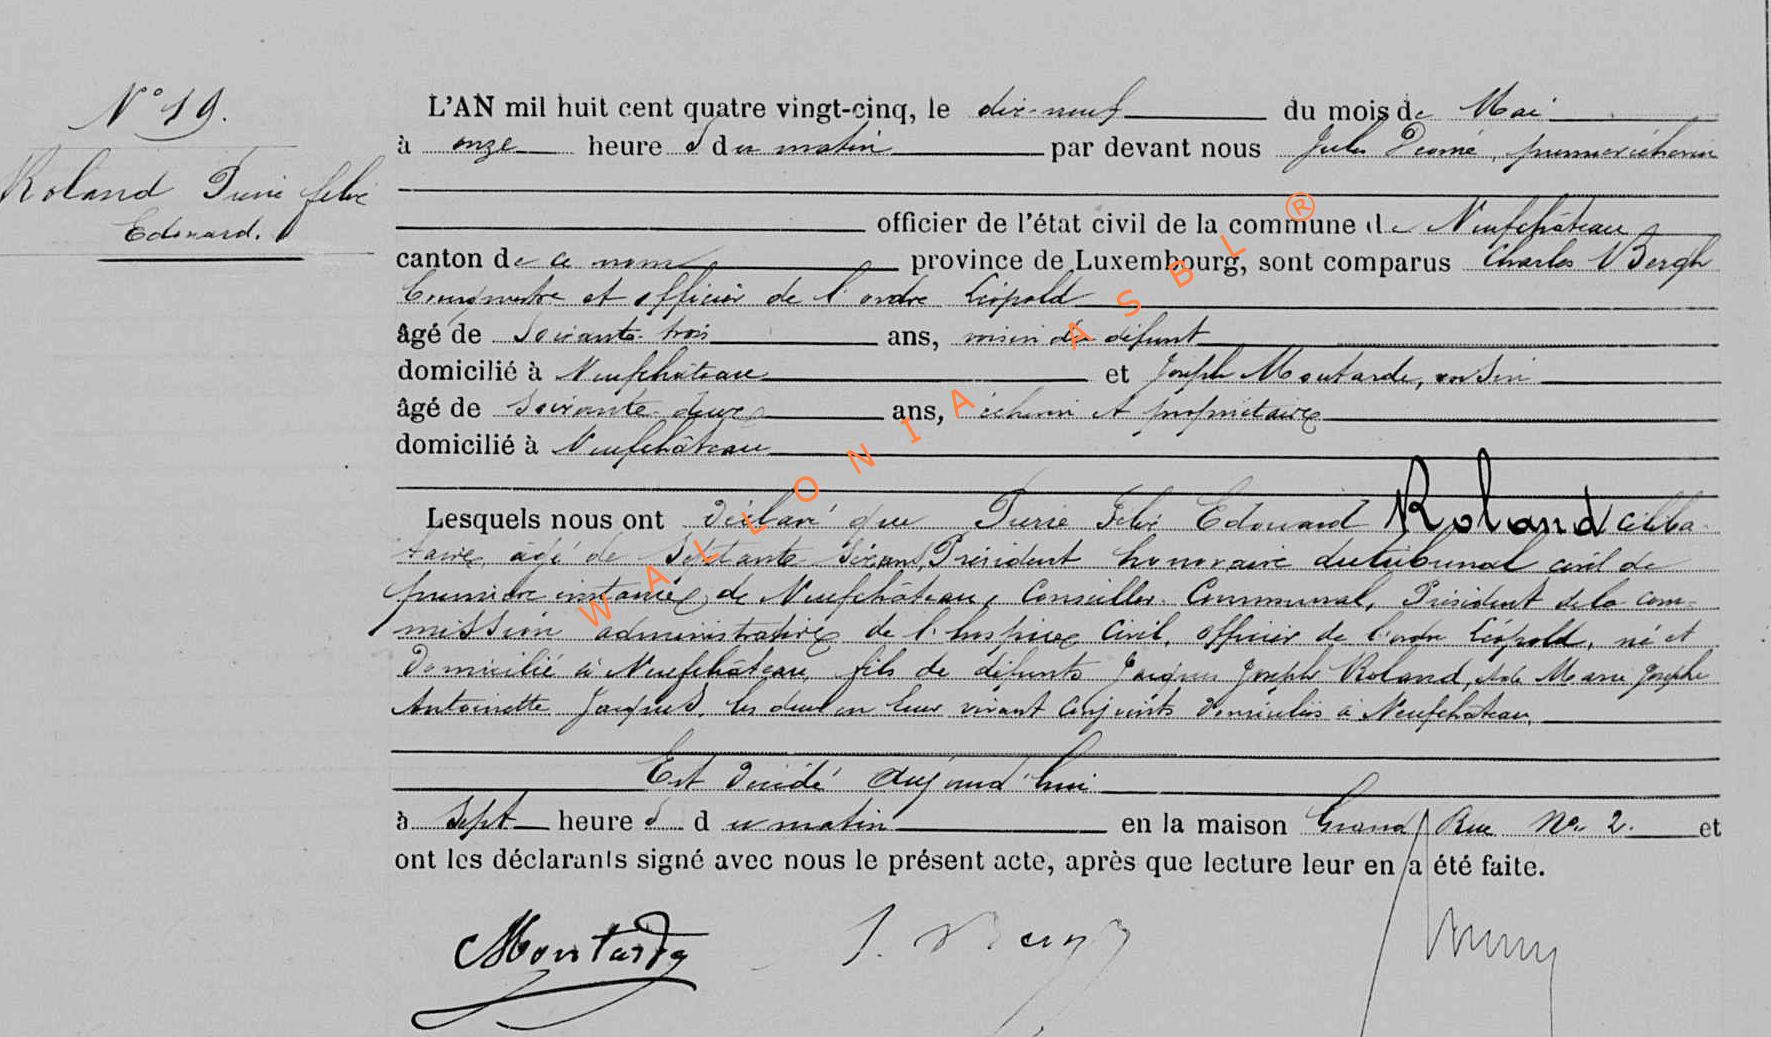 N° 19.
Roland Felix
Edouard.
L'AN mil huit cent quatre vingt-cinq, le dix-neuf du mois de Mai
à onze heures du matin par devant nous Jules premier échevin
officier de l'état civil de la commune de Neufchâteau
canton de ce nom province de Luxembourg, sont comparus Charles Bergh
Bourgmestre et officier de l'ordre Léopold
âgé de Soixante-trois ans, voisin du défunt
domicilié à Neufchâteau et Joseph Moutarde, voisin
âgé de soixante-deux ans, échevin et propriétaire
domicilié à Neufchâteau
Lesquels nous ont déclaré que Felix Edouard Roland céliba-
taire, âgé de Septante ans, Président honoraire du tribunal civil de
première instance de Neufchâteau, Conseiller Communal, Président de la com-
mission administrative de l'hospice civil, officier de l'ordre Léopold, né et
Domicilié à Neufchâteau, fils de défunts Jacques Joseph Roland, et de Marie Josephe
Antoinette Jacques, les deux en leur vivant Conjoints domiciliés à Neufchâteau,
Est décédé aujourd'hui
à Sept heures du matin en la maison Grand Rue No. 2. et
ont les déclarants signé avec nous le présent acte, après que lecture leur en a été faite.
Moutarde
WALLONIA ASBL ®